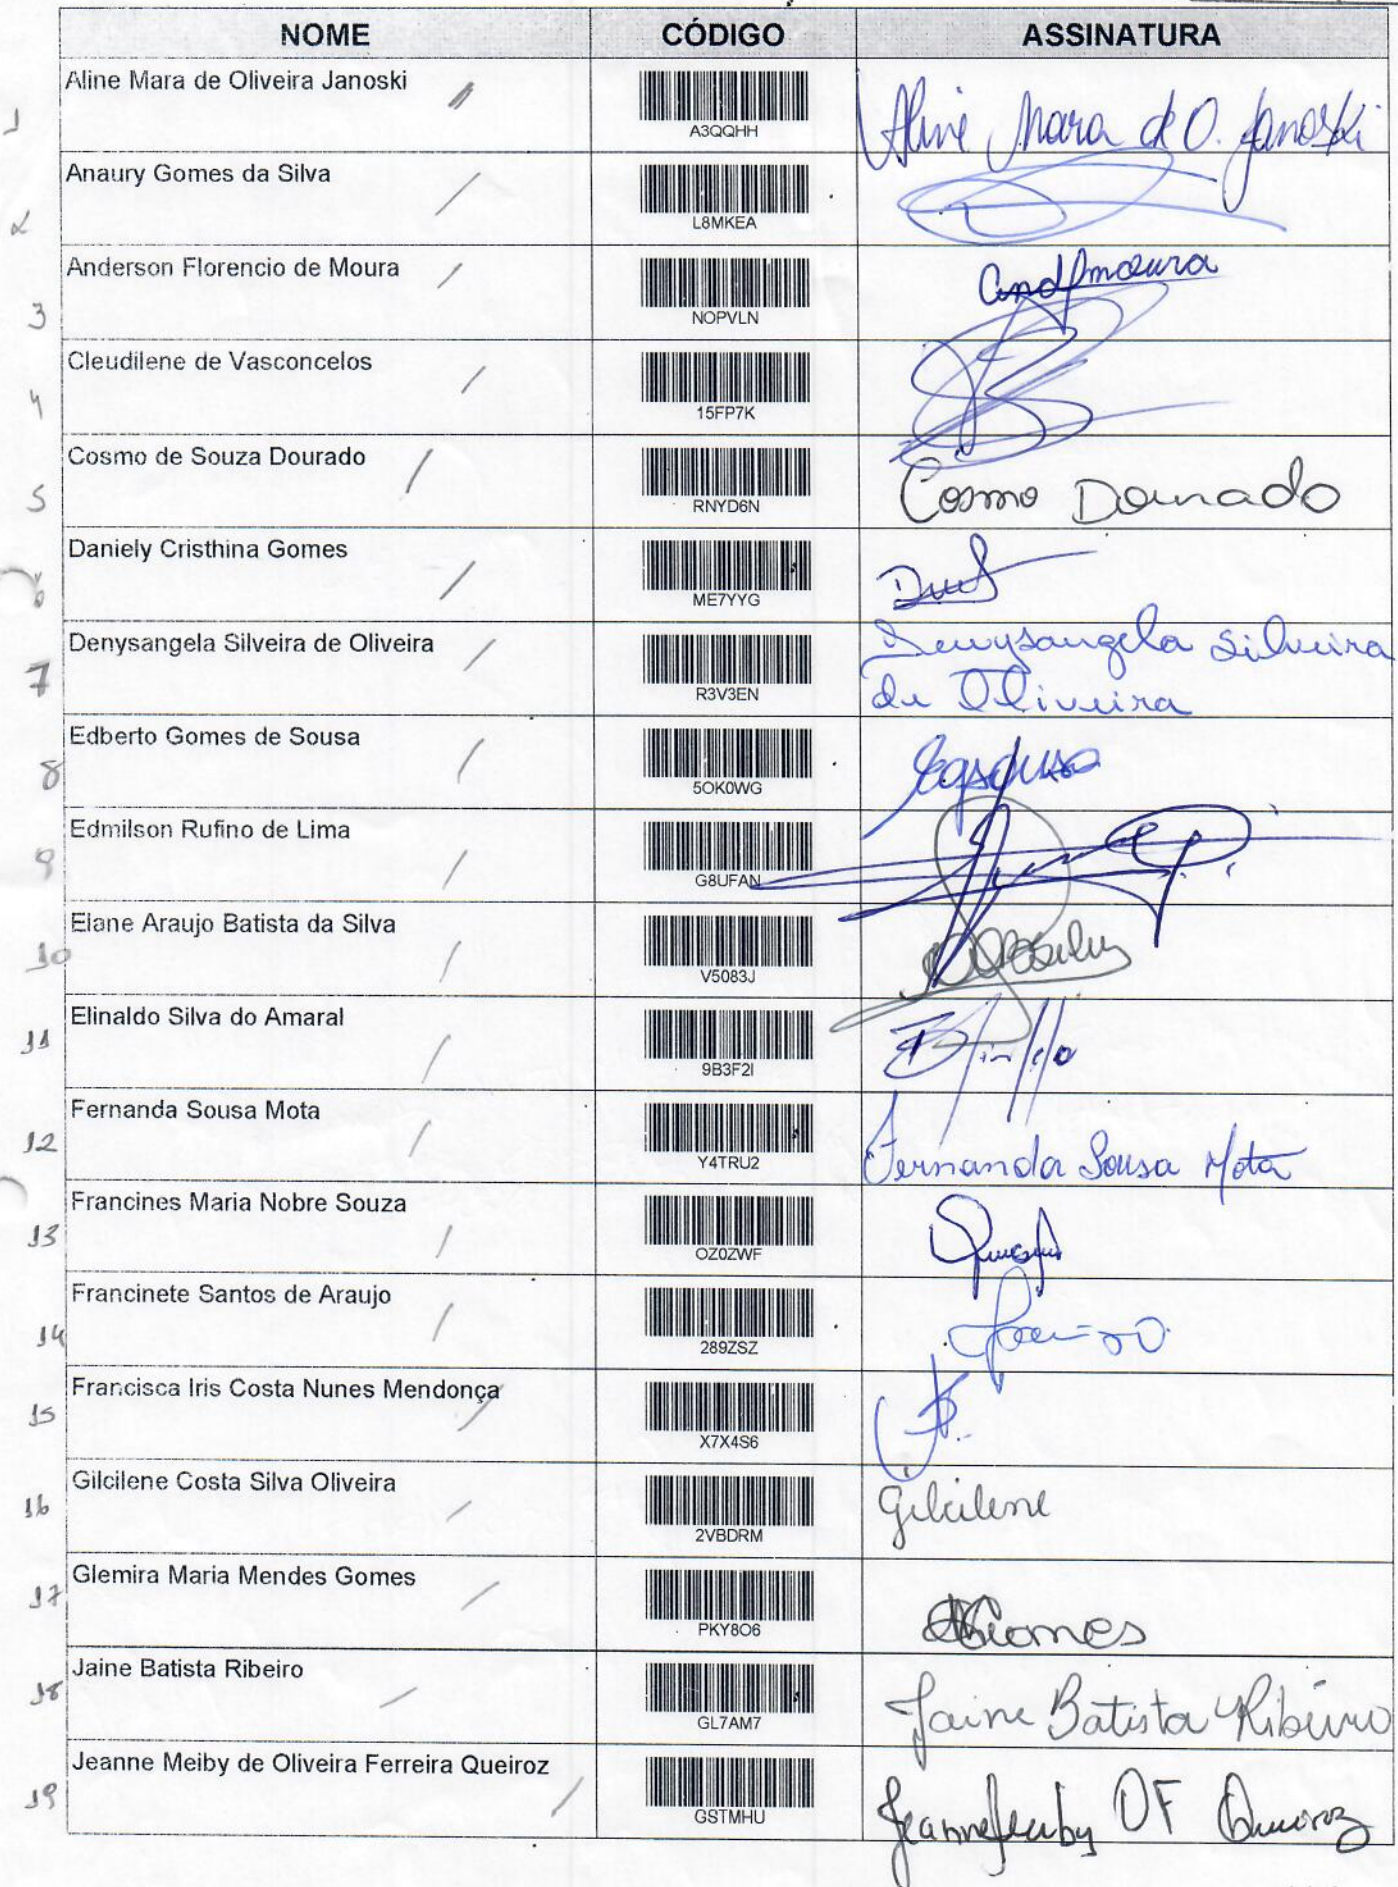 NOME CÓDIGO ASSINATURA
1 Aline Mara de Oliveira Janoski A3QQHH Aline Mara de O. Janoski
2 Anaury Gomes da Silva L8MKEA
3 Anderson Florencio de Moura NOPVLN andfmoura
4 Cleudilene de Vasconcelos 15FP7K
5 Cosmo de Souza Dourado RNYD6N Cosmo Dourado
6 Daniely Cristhina Gomes ME7YYG
7 Denysangela Silveira de Oliveira R3V3EN Denysangela Silveira
de Oliveira
8 Edberto Gomes de Sousa 5OK0WG egsousa
9 Edmilson Rufino de Lima G8UFAN
10 Elane Araujo Batista da Silva V5083J
11 Elinaldo Silva do Amaral 9B3F2I
12 Fernanda Sousa Mota Y4TRU2 Fernanda Sousa Mota
13 Francines Maria Nobre Souza OZ0ZWF
14 Francinete Santos de Araujo 289ZSZ
15 Francisca Iris Costa Nunes Mendonça X7X4S6
16 Gilcilene Costa Silva Oliveira 2VBDRM Gilcilene
17 Glemira Maria Mendes Gomes PKY8O6 Gomes
18 Jaine Batista Ribeiro GL7AM7 Jaine Batista Ribeiro
19 Jeanne Meiby de Oliveira Ferreira Queiroz GSTMHU Jeanne Meiby OF Queiroz